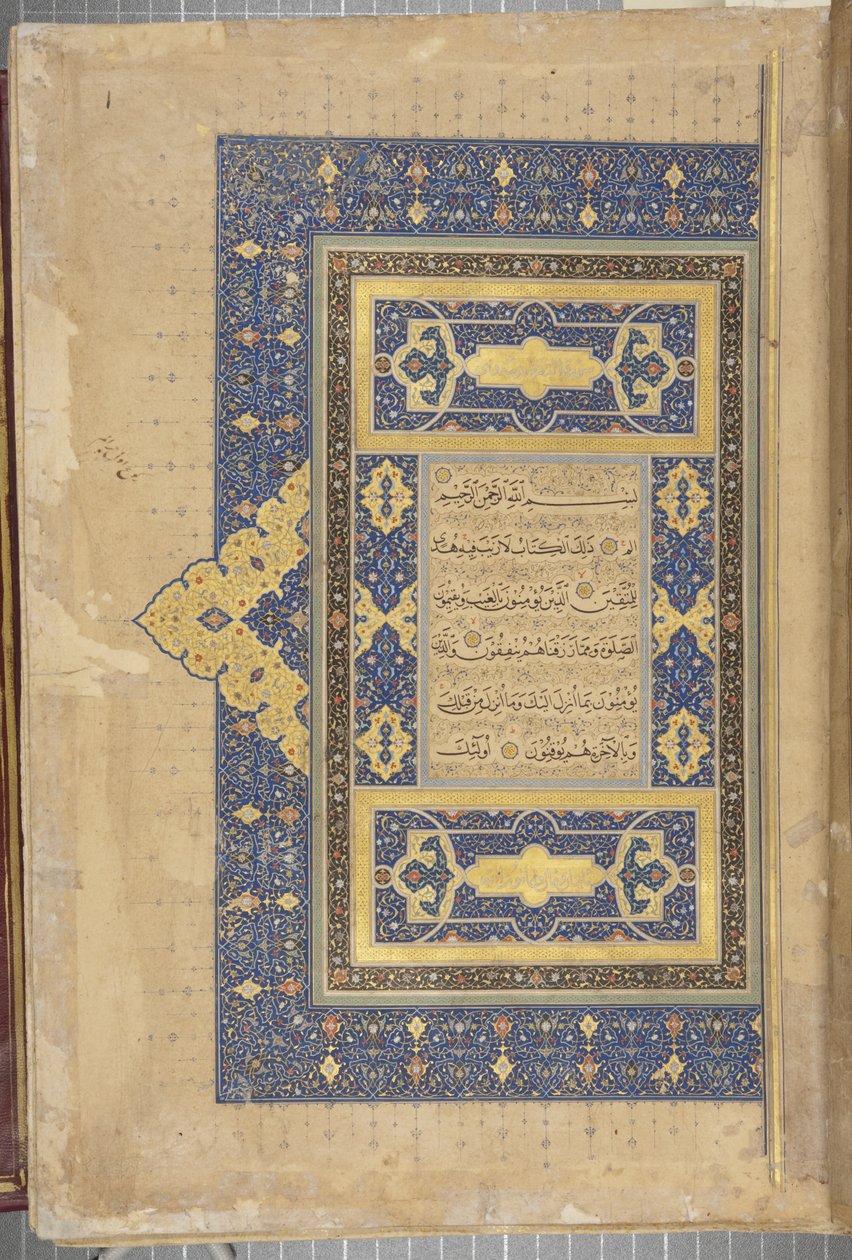 بِسْمِ اللَّهِ الرَّحْمٰنِ الرَّحِيمِ
الم ذٰلِكَ الْكِتَابُ لَا رَيْبَ فِيهِ هُدًى
لِلْمُتَّقِينَ الَّذِينَ يُؤْمِنُونَ بِالْغَيْبِ وَيُقِيمُونَ
الصَّلٰوةَ وَمِمَّا رَزَقْنَاهُمْ يُنْفِقُونَ وَالَّذِينَ
يُؤْمِنُونَ بِمَا اُنْزِلَ اِلَيْكَ وَمَا اُنْزِلَ مِنْ قَبْلِكَ
وَبِالْآخِرَةِ هُمْ يُوقِنُونَ اُولٰئِكَ